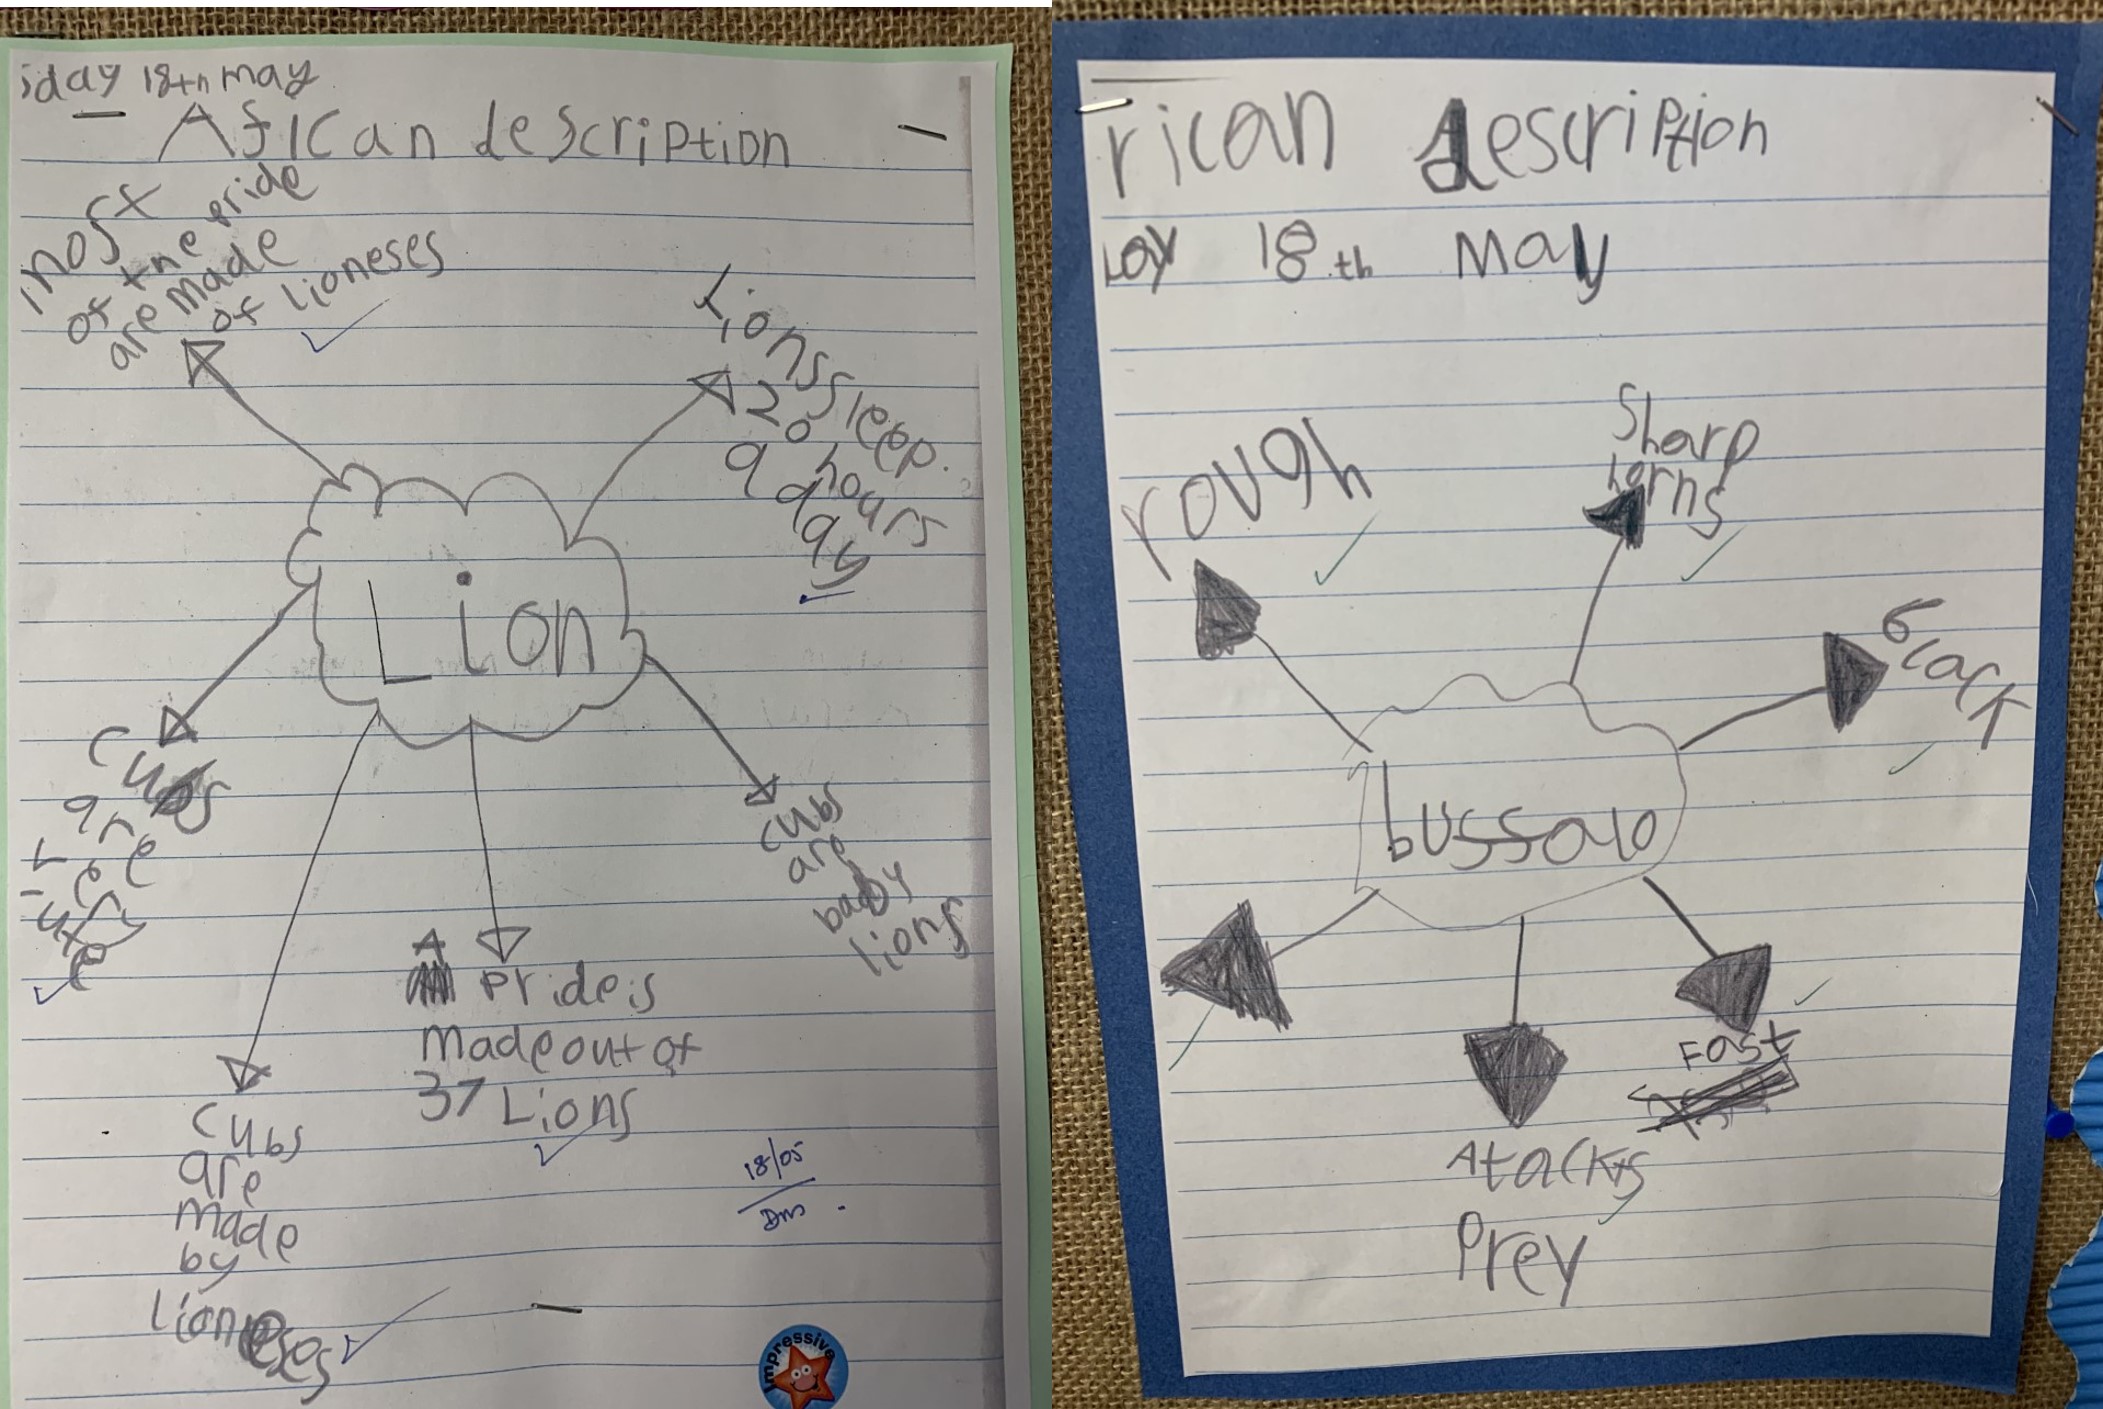 iday 18th may
Afican description
most
of the pride
are made
of lioneses
Lions sleep
20 hours
a day
Lion
cubs
are
cute
cubs
are
baby
lions
A pride is
made out of
37 Lions
cubs
are
made
by
lioneses
18/05
Dm
Impressive
rican description
day 18th May
rough
Sharp
horns
black
bussalo
Fast
Atacks
Prey